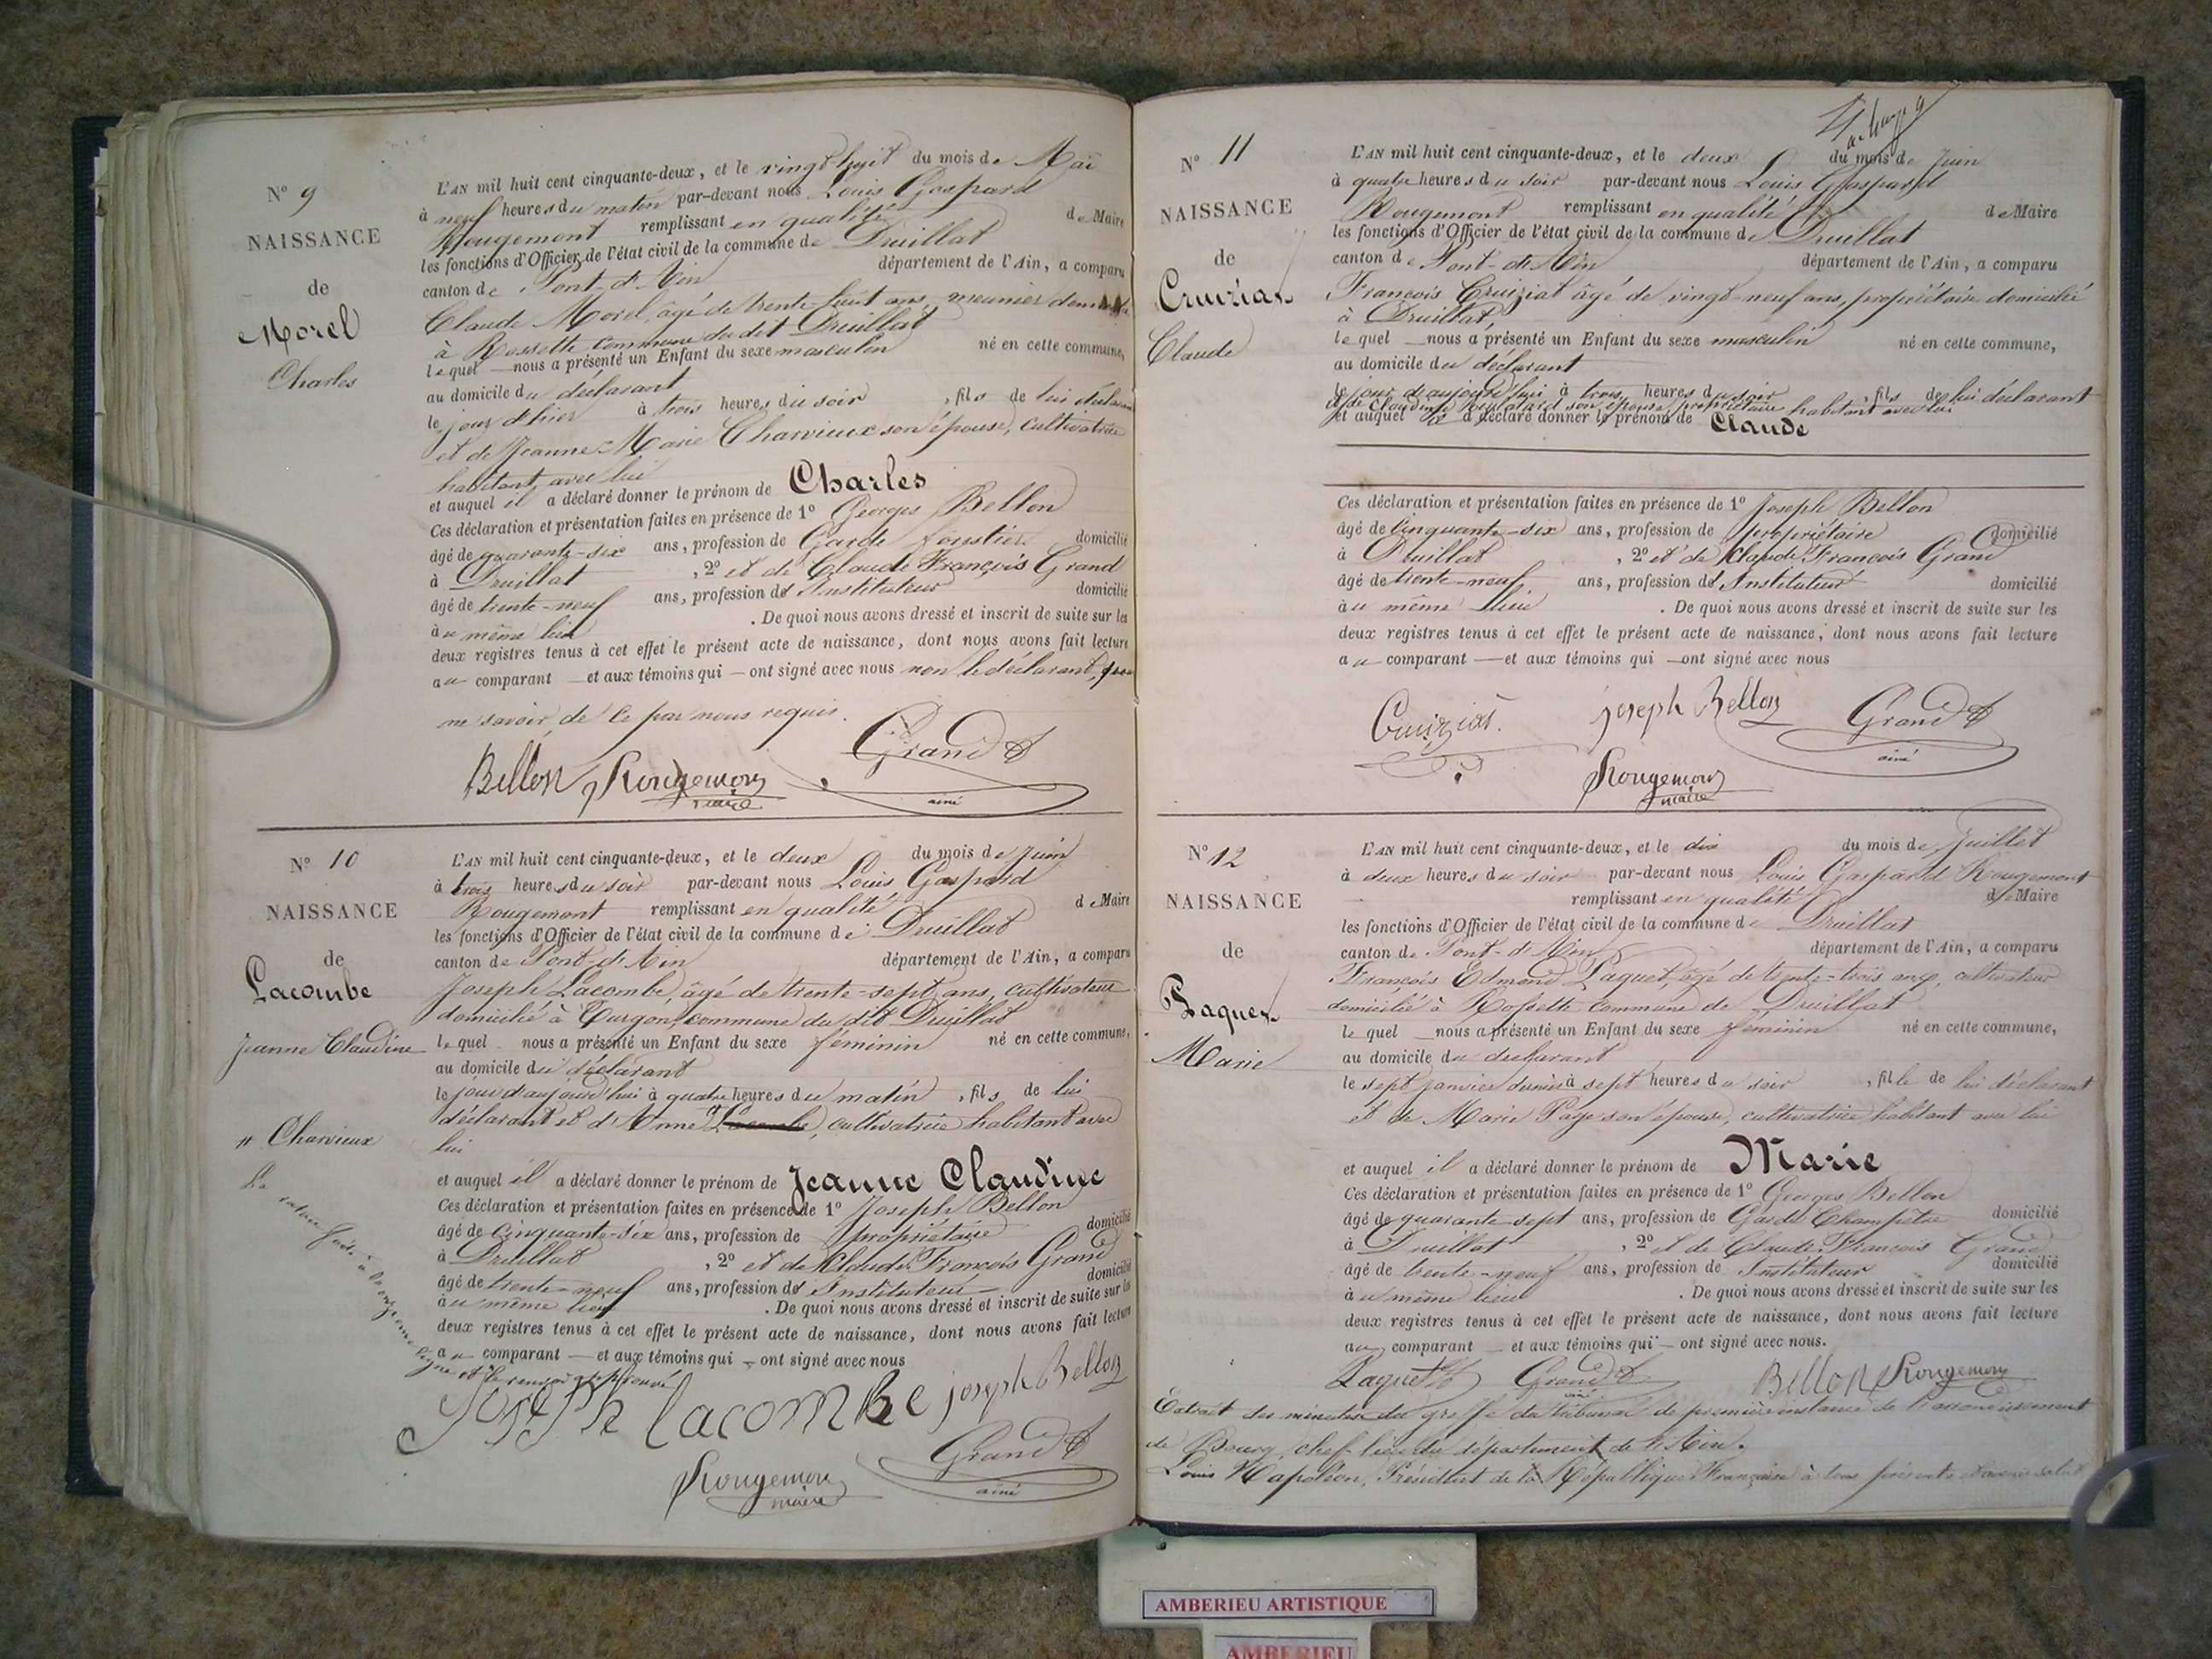 N° 9
NAISSANCE
de
Morel
Charles
L'AN mil huit cent cinquante-deux, et le vingt huit du mois de Mai
à neuf heures du matin par-devant nous Louis Gaspard
Rougemont remplissant en qualité de Maire
les fonctions d'Officier de l'état civil de la commune de Druillat
canton de Pont-d'Ain département de l'Ain, a comparu
Claude Morel, âgé de trente-huit ans, meunier
à Rossette commune du dit Druillat
lequel nous a présenté un Enfant du sexe masculin né en cette commune,
au domicile du déclarant
le jour d'hier à trois heures du soir, fils de lui déclarant
et de Jeanne-Marie Charvieux son épouse, cultivatrice
habitant avec lui
et auquel il a déclaré donner le prénom de Charles
Ces déclaration et présentation faites en présence de 1° Georges Bellon
âgé de quarante-six ans, profession de Garde forestier domicilié
à Druillat, 2° et de Claude François Grand
âgé de trente-neuf ans, profession d'Instituteur domicilié
au même lieu. De quoi nous avons dressé et inscrit de suite sur les
deux registres tenus à cet effet le présent acte de naissance, dont nous avons fait lecture
au comparant et aux témoins qui ont signé avec nous non le déclarant, pour
ne savoir, de ce par nous requis.
Grand
Bellon Rougemont
maire
ainé
N° 10
NAISSANCE
de
Lacombe
Jeanne Claudine
" Charvieux
L'AN mil huit cent cinquante-deux, et le deux du mois de Juin
à trois heures du soir par-devant nous Louis Gaspard
Rougemont remplissant en qualité de Maire
les fonctions d'Officier de l'état civil de la commune de Druillat
canton de Pont-d'Ain département de l'Ain, a comparu
Joseph Lacombe, âgé de trente-sept ans, cultivateur
domicilié à Turgon, commune du dit Druillat
lequel nous a présenté un Enfant du sexe féminin né en cette commune,
au domicile du déclarant
le jour d'aujourd'hui à quatre heures du matin, fils de lui
déclarant et d'Anne " Lacombe, cultivatrice habitant avec
lui
et auquel il a déclaré donner le prénom de Jeanne Claudine
Ces déclaration et présentation faites en présence de 1° Joseph Bellon
âgé de cinquante-six ans, profession de propriétaire domicilié
à Druillat, 2° et de Claude François Grand
âgé de trente-neuf ans, profession d'Instituteur domicilié
au même lieu. De quoi nous avons dressé et inscrit de suite sur les
deux registres tenus à cet effet le présent acte de naissance, dont nous avons fait lecture
au comparant et aux témoins qui ont signé avec nous
La rature faite à la onzième ligne et le renvoi approuvé
Joseph lacombe joseph Bellon
Grand
Rougemont
maire
ainé
N° 11
NAISSANCE
de
Cruiziat
Claude
L'AN mil huit cent cinquante-deux, et le deux du mois de Juin
à quatre heures du soir par-devant nous Louis Gaspard
Rougemont remplissant en qualité de Maire
les fonctions d'Officier de l'état civil de la commune de Druillat
canton de Pont-d'Ain département de l'Ain, a comparu
François Cruiziat âgé de vingt-neuf ans, propriétaire domicilié
à Druillat,
lequel nous a présenté un Enfant du sexe masculin né en cette commune,
au domicile du déclarant
le jour d'aujourd'hui à trois heures du soir, fils de lui déclarant
son épouse, propriétaire habitant avec lui
et auquel il a déclaré donner le prénom de Claude
Ces déclaration et présentation faites en présence de 1° Joseph Bellon
âgé de cinquante-six ans, profession de propriétaire domicilié
à Druillat, 2° et de Claude François Grand
âgé de trente-neuf ans, profession d'Instituteur domicilié
au même lieu. De quoi nous avons dressé et inscrit de suite sur les
deux registres tenus à cet effet le présent acte de naissance, dont nous avons fait lecture
au comparant et aux témoins qui ont signé avec nous
Cruiziat. joseph Bellon Grand
ainé
Rougemont
maire
N° 12
NAISSANCE
de
Paquet
Marie
L'AN mil huit cent cinquante-deux, et le dix du mois de Juillet
à deux heures du soir par-devant nous Louis Gaspard Rougemont
remplissant en qualité de Maire
les fonctions d'Officier de l'état civil de la commune de Druillat
canton de Pont-d'Ain département de l'Ain, a comparu
François Edmond Paquet, âgé de trente-trois ans, cultivateur
domicilié à Rossette commune de Druillat
lequel nous a présenté un Enfant du sexe féminin né en cette commune,
au domicile du déclarant
le sept janvier dernier à sept heures du soir, fille de lui déclarant
et de Marie Page son épouse, cultivatrice habitant avec lui
et auquel il a déclaré donner le prénom de Marie
Ces déclaration et présentation faites en présence de 1° Georges Bellon
âgé de quarante-sept ans, profession de Garde Champêtre domicilié
à Druillat, 2° et de Claude François Grand
âgé de trente-neuf ans, profession de Instituteur domicilié
au même lieu. De quoi nous avons dressé et inscrit de suite sur les
deux registres tenus à cet effet le présent acte de naissance, dont nous avons fait lecture
au comparant et aux témoins qui ont signé avec nous.
Paquet Grand Bellon Rougemont
ainé
Extrait des minutes du greffe du tribunal de première instance de l'arrondissement
de Bourg, chef-lieu du département de l'Ain.
Louis Napoléon, Président de la République Française à tous présents et à venir salut
AMBERIEU ARTISTIQUE
AMBERIEU